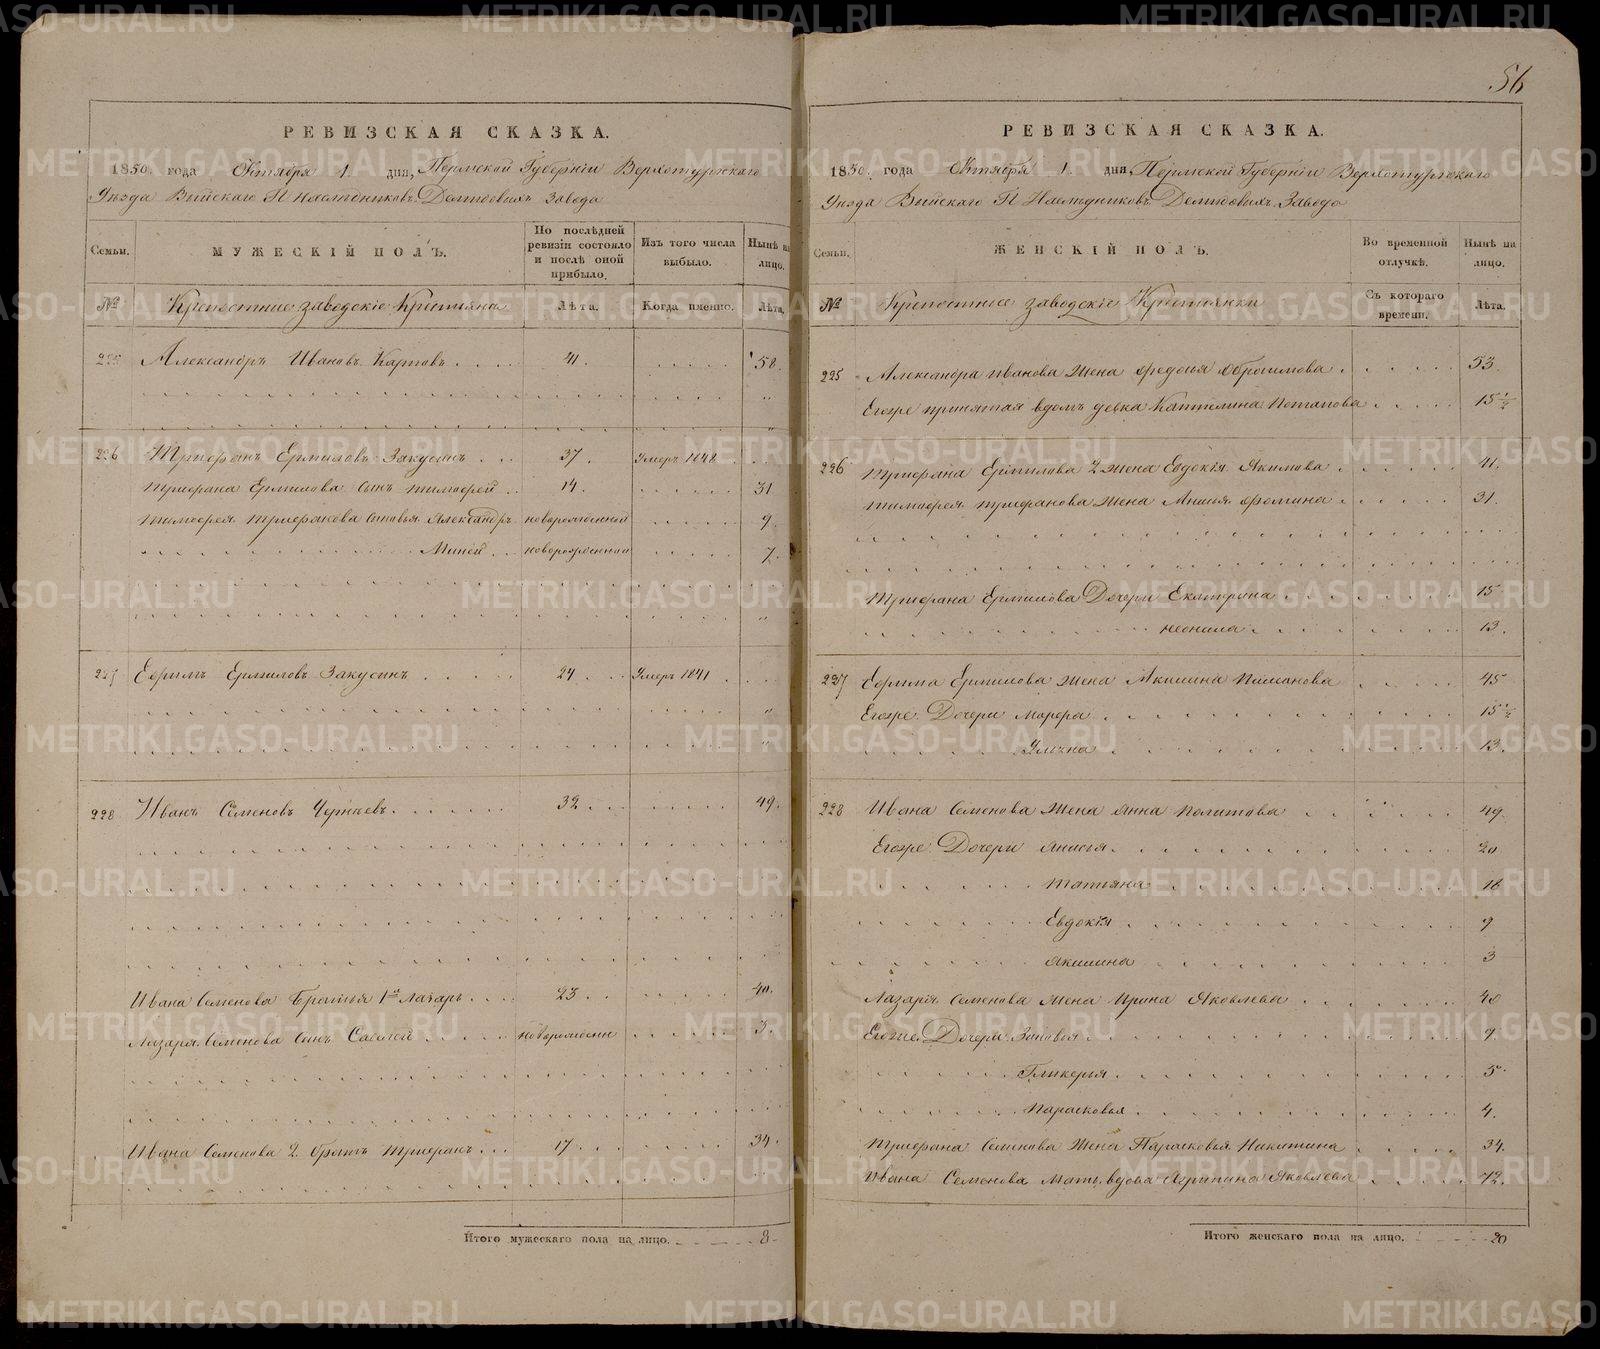 56
РЕВИЗСКАЯ СКАЗКА.
1850. года Октября 1. дня, Пермской Губерніи Верхотурскаго
Уѣзда Выйскаго Гг. Наслѣдниковъ Демидовыхъ Завода
Семьи. МУЖЕСКІЙ ПОЛЪ. По послѣдней ревизіи состояло и послѣ оной прибыло. Изъ того числа выбыло. Нынѣ на лицо.
№ Крепостные заводскіе Крестьяна Лѣта. Когда именно. Лѣта.
225 Александръ Ивановъ Карповъ 41. 58.
226 Трифанъ Ермиловъ Закусинъ 37. Умеръ 1848.
Трифана Ермилова сынъ Тимофей 14. 31
Тимофея Трифанова сыновья Александръ новорожденной 9.
Миней новорожденной 7.
227 Ефимъ Ермиловъ Закусинъ 24 Умеръ 1841
228 Иванъ Семеновъ Черткевъ 32 49.
Ивана Семенова Братья 1й Лазарь 23 40.
Лазаря Семенова сынъ Савелей новорожден 3.
Ивана Семенова 2. братъ Трифанъ 17 34
Итого мужескаго пола на лицо. 8
РЕВИЗСКАЯ СКАЗКА.
1850. года Октября 1. дня Пермской Губерніи Верхотурскаго
Уѣзда Выйскаго Гг. Наслѣдниковъ Демидовыхъ Завода
Семьи. ЖЕНСКІЙ ПОЛЪ. Во временной отлучкѣ. Нынѣ на лицо.
№ Крепостные заводскіе Крестьянки Съ котораго времени. Лѣта.
225 Александра Иванова Жена Федосья Обросимова 53.
Егоже принятая вдомъ девка Капитолина Потапова 15 1/2
226 Трифана Ермилова 2 Жена Евдокія Якимова 41.
Тимофея Трифанова Жена Анисья Фомина 31.
Трифана Ермилова Дочери Екатерина 15
Неонила 13.
227 Ефима Ермилова Жена Акилина 45
Егоже Дочери Марфа 15 1/2
Улиана 13.
228 Ивана Семенова Жена Анна Политова 49.
Егоже Дочери Анисья 20
Татьяна 18
Евдокія 9
Акилина 3
Лазаря Семенова Жена Ирина Яковлева 40
Егоже Дочери Зиновья 9.
Гликерья 5.
Парасковья 4.
Трифана Семенова Жена Парасковья Никитина 34.
Ивана Семенова Мать вдова Агрипина Яковлева 72.
Итого женскаго пола на лицо. 20
METRIKI.GASO-URAL.RU